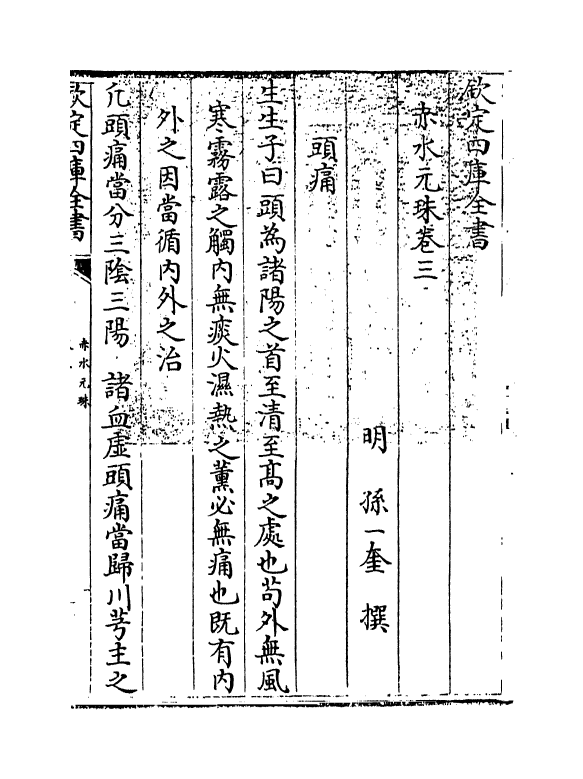 欽定四庫全書
赤水元珠卷三
明 孫一奎 撰
頭痛
生生子曰頭為諸陽之首至清至髙之處也茍外無風
寒霧露之觸内無痰火濕熱之薰必無痛也既有内
外之因當循内外之治
凢頭痛當分三隂三陽 諸血虚頭痛當歸川芎主之
欽定四庫全書
赤水元珠